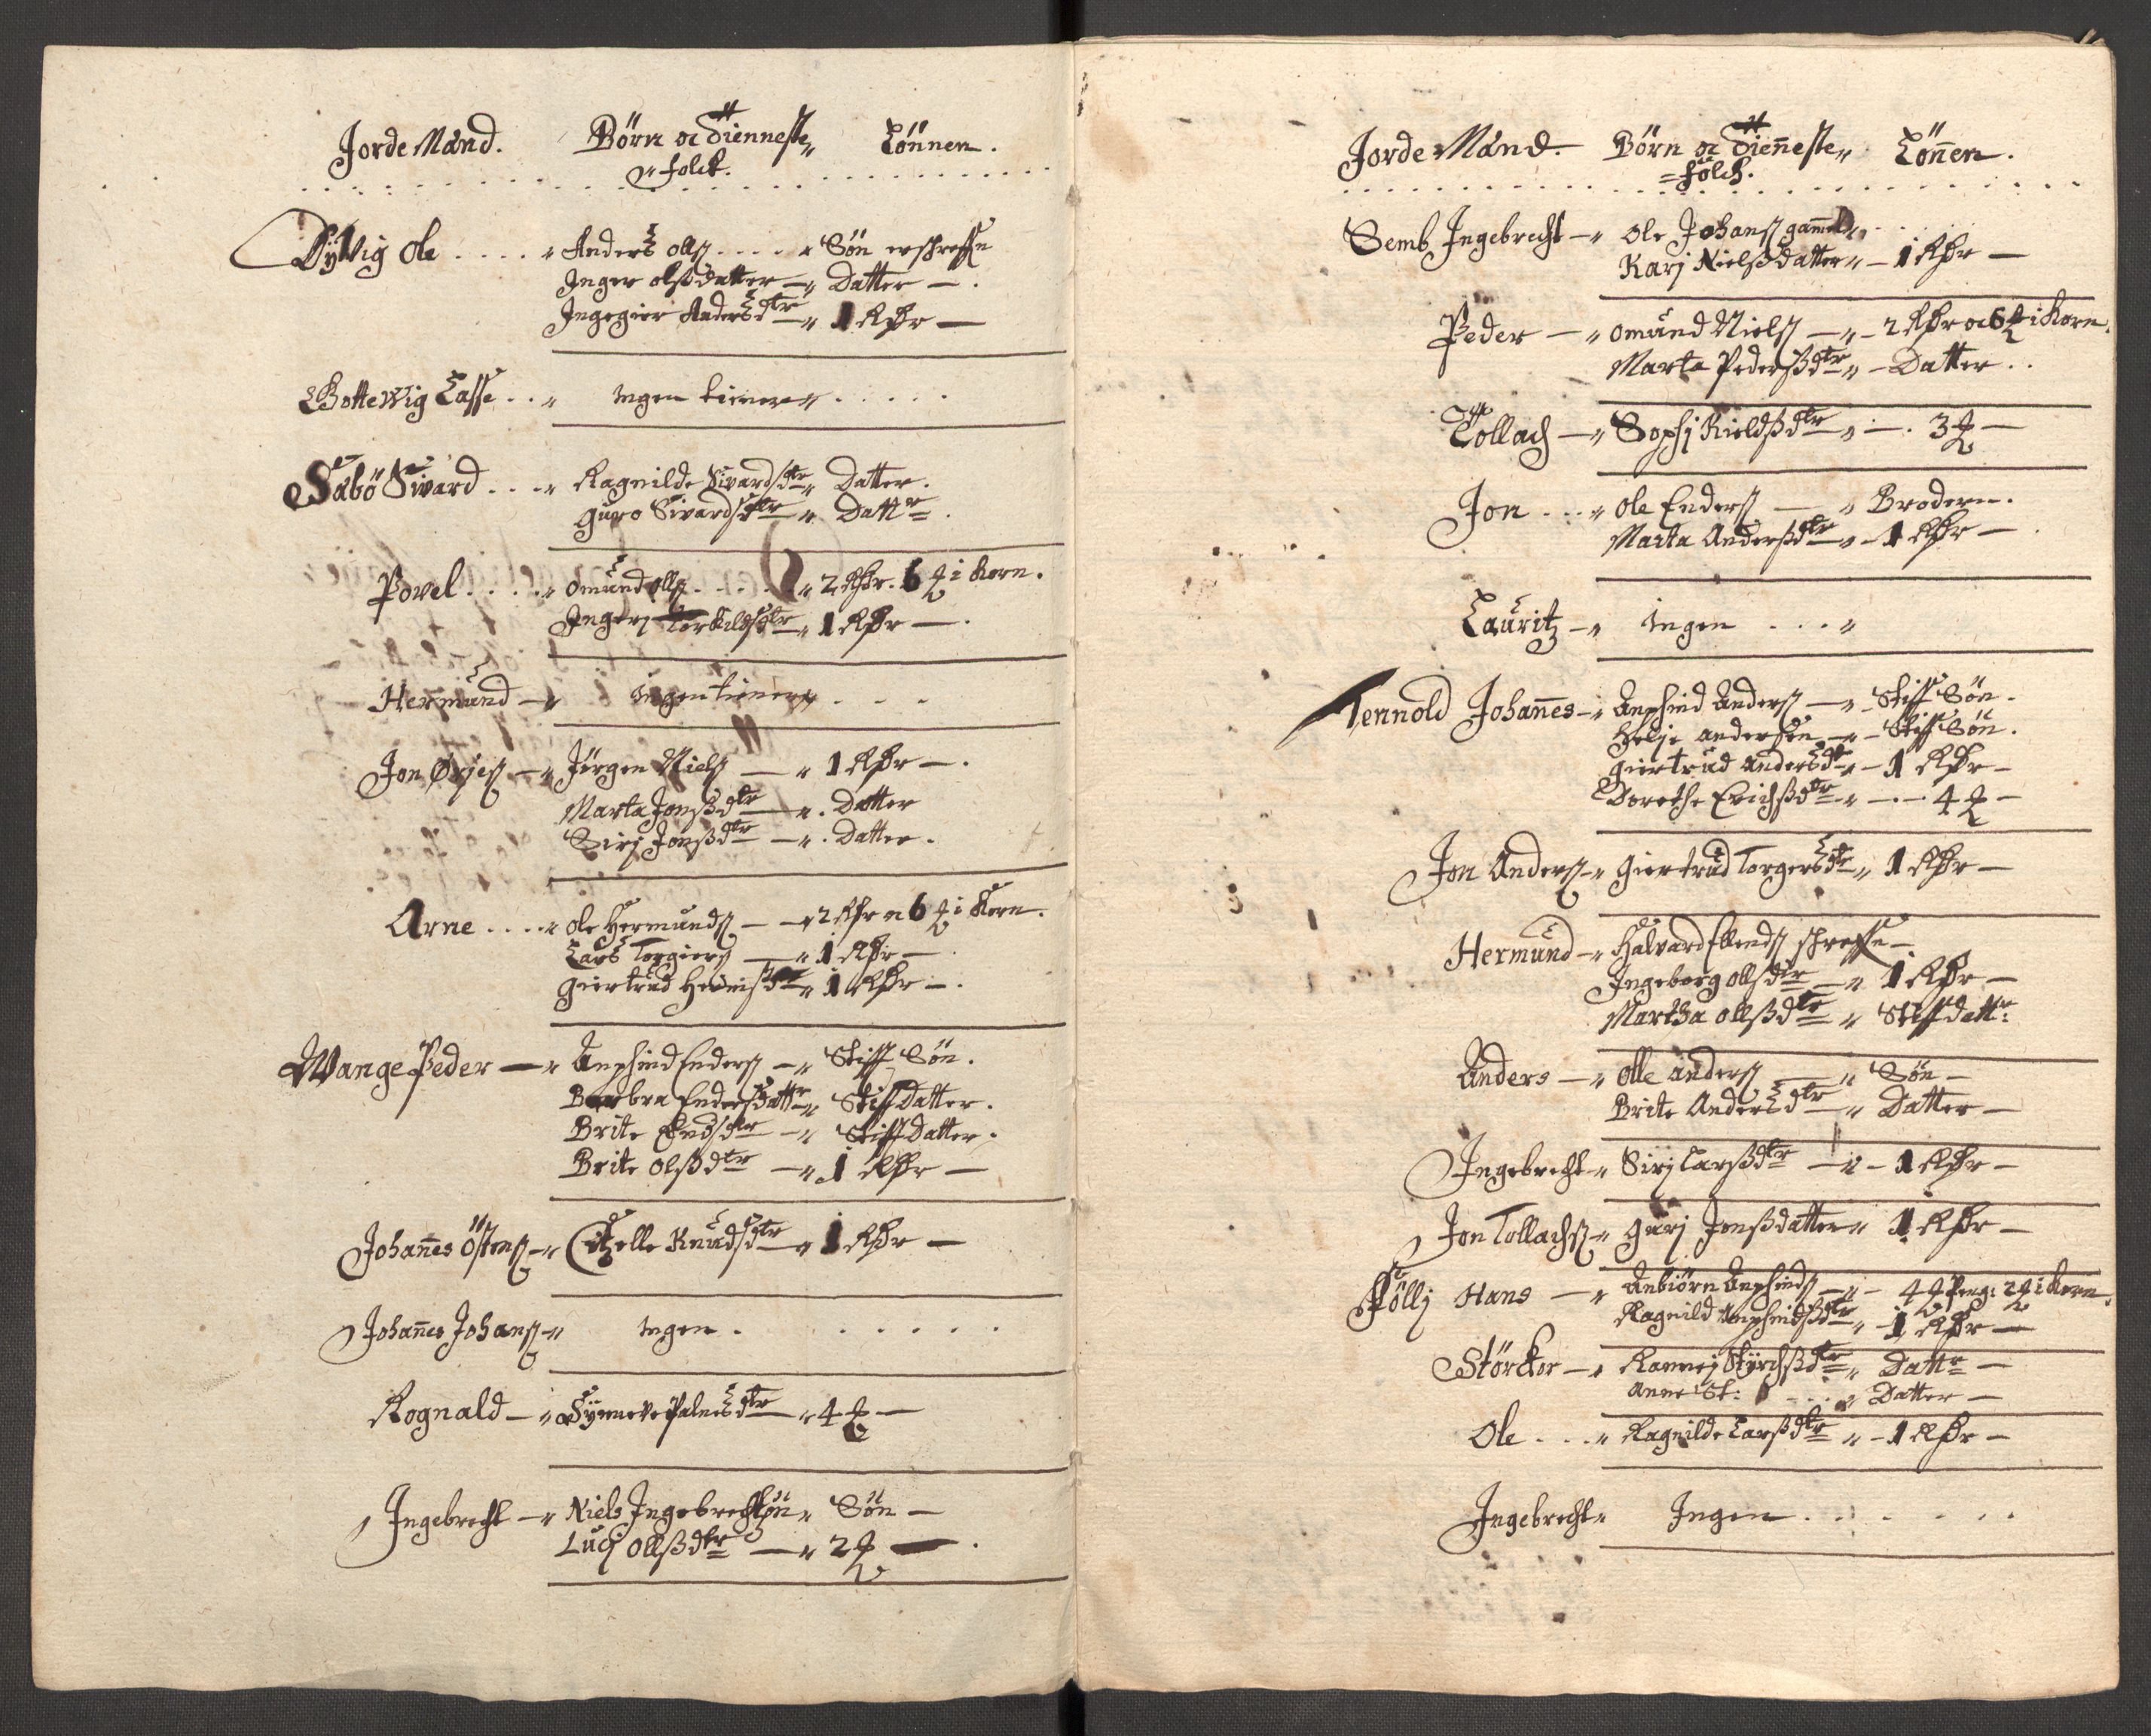 Jorde Mánd. Börn oc Tienneste„ Lönnen.
„folck.
Dyvig Ole . . . . „ Anders Olls . . . . „ Sön
Inger Olsdatter — „ Datter — .
Ingegier Andersdtr — „ 1 Rdr —
Bottewig Lasse . . „ Ingen tienner „ . . . . .
Säbö Sivard . . . „ Ragnilde Sivardsdtr „ Datter.
Guro Sivardsdtr „ Dattr.
Povel . . . . „ Omund Olls . . . . „ 2 Rdr. 6 ℔ i Korn.
Ingerj Torkilsdtr „ 1 Rdr — .
Hermünd — „ Ingen tienner „ . . .
Jon — „ Jörgen Niels — „ 1 Rdr — .
Marta Jonsdtr — „ . Datter
Sirj Jonsdtr — „ . Datter.
Arne . . . . „ Ole Hermunds — „ 2 Rdr a 6 ℔ i Korn.
Lars Torgiers — „ 1 Rdr —
Giertrud „ 1 Rdr — .
Wange Peder — „ Anphind Enders — „ Stiff Sön.
Barbra Endersdattr „ Stiff Datter.
Brite Endsdtr — „ Stiff Datter.
Brite Olsdtr — „ 1 Rdr —
Johanes Östens — „ Citzelle Knudsdtr „ 1 Rdr —
Johanes Johans — „ Ingen . . . . . .
Rognald — „ Synneve Palnesdtr „ 4 ℔ —
Ingebrecht — „ Niels Ingebrechtsön „ Sön —
Luci Ollsdtr — „ 2 ℔ — .
Jorde Mánd. Börn oc Tienneste „ Lönen.
= folch.
Semb Ingebrecht — „ Ole Johans gammel „ . . .
Karj Nielsdatter „ — 1 Rdr —
Peder — „ Omund Niels — „ — 2 Rdr oc 6 ℔ i Korn.
Marta Pedersdtr „ — Datter . .
Tollach — „ Sophj Kieldsdtr „ — . 3 ℔ —
Jon . . . „ Ole Enders — „ Brodern.
Marta Andersdtr — „ — 1 Rdr — .
Lauritz — „ Ingen . . . „
Tennold Johannes — „ Anphind Anders — „ — Stiff Sön.
Helje Andersön — „ — Stiff Sön.
Giertrud Andersdtr „ — 1 Rdr —
Dorethe Erichsdtr „ — — 4 ℔ —
Jon Anders — „ Giertrud Torgersdtr „ 1 Rdr —
Hermund — „ Halvard —
Ingeborg Ollsdtr — „ 1 Rdr —
Martha Ollsdtr — „ Stiff dattr:
Anders — „ Olle Anders — „ Sön —
Brite Andersdtr — „ Datter —
Ingebrecht „ Sirj Larsdtr — „ — 1 Rdr —
Jon Tollachs — „ Gurj Jonsdatter „ 1 Rdr —
Fölli Hans — „ Anbiörn Anphinds — „ — 4 ℔ Peng: 2 ℔ i Korn.
Ragnild Anphindsdtr „ — 1 Rdr —
Störckor — „ Ranvej Styrchsdtr „ Dattr —
Anne St: . . . „ Datter —
Ole . . . „ Ragnilde Larsdtr „ — 1 Rdr —
Ingebrecht „ Ingen . . . . . .